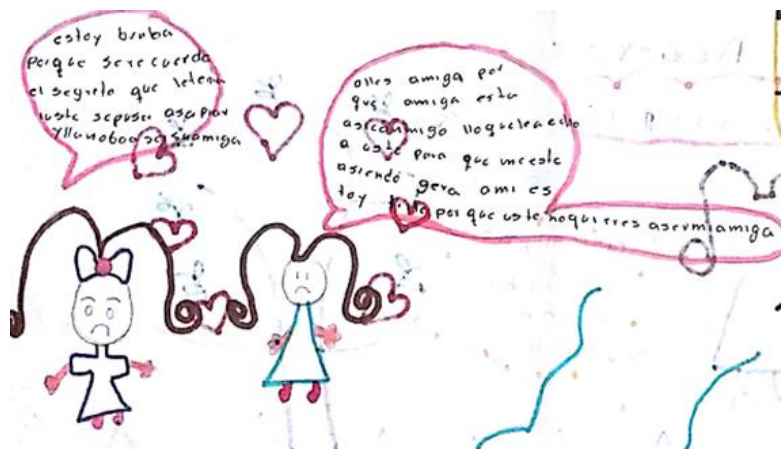 estoy braba
porque se recuerda
el segreto que letenia
uste sepuso asapiar
yllanoboasersuamiga
olles amiga por
que amiga esta
asiconmigo lloqueleecho
a uste para que meeste
asiendo gera ami es
toy porque uste noquieres asermiamiga